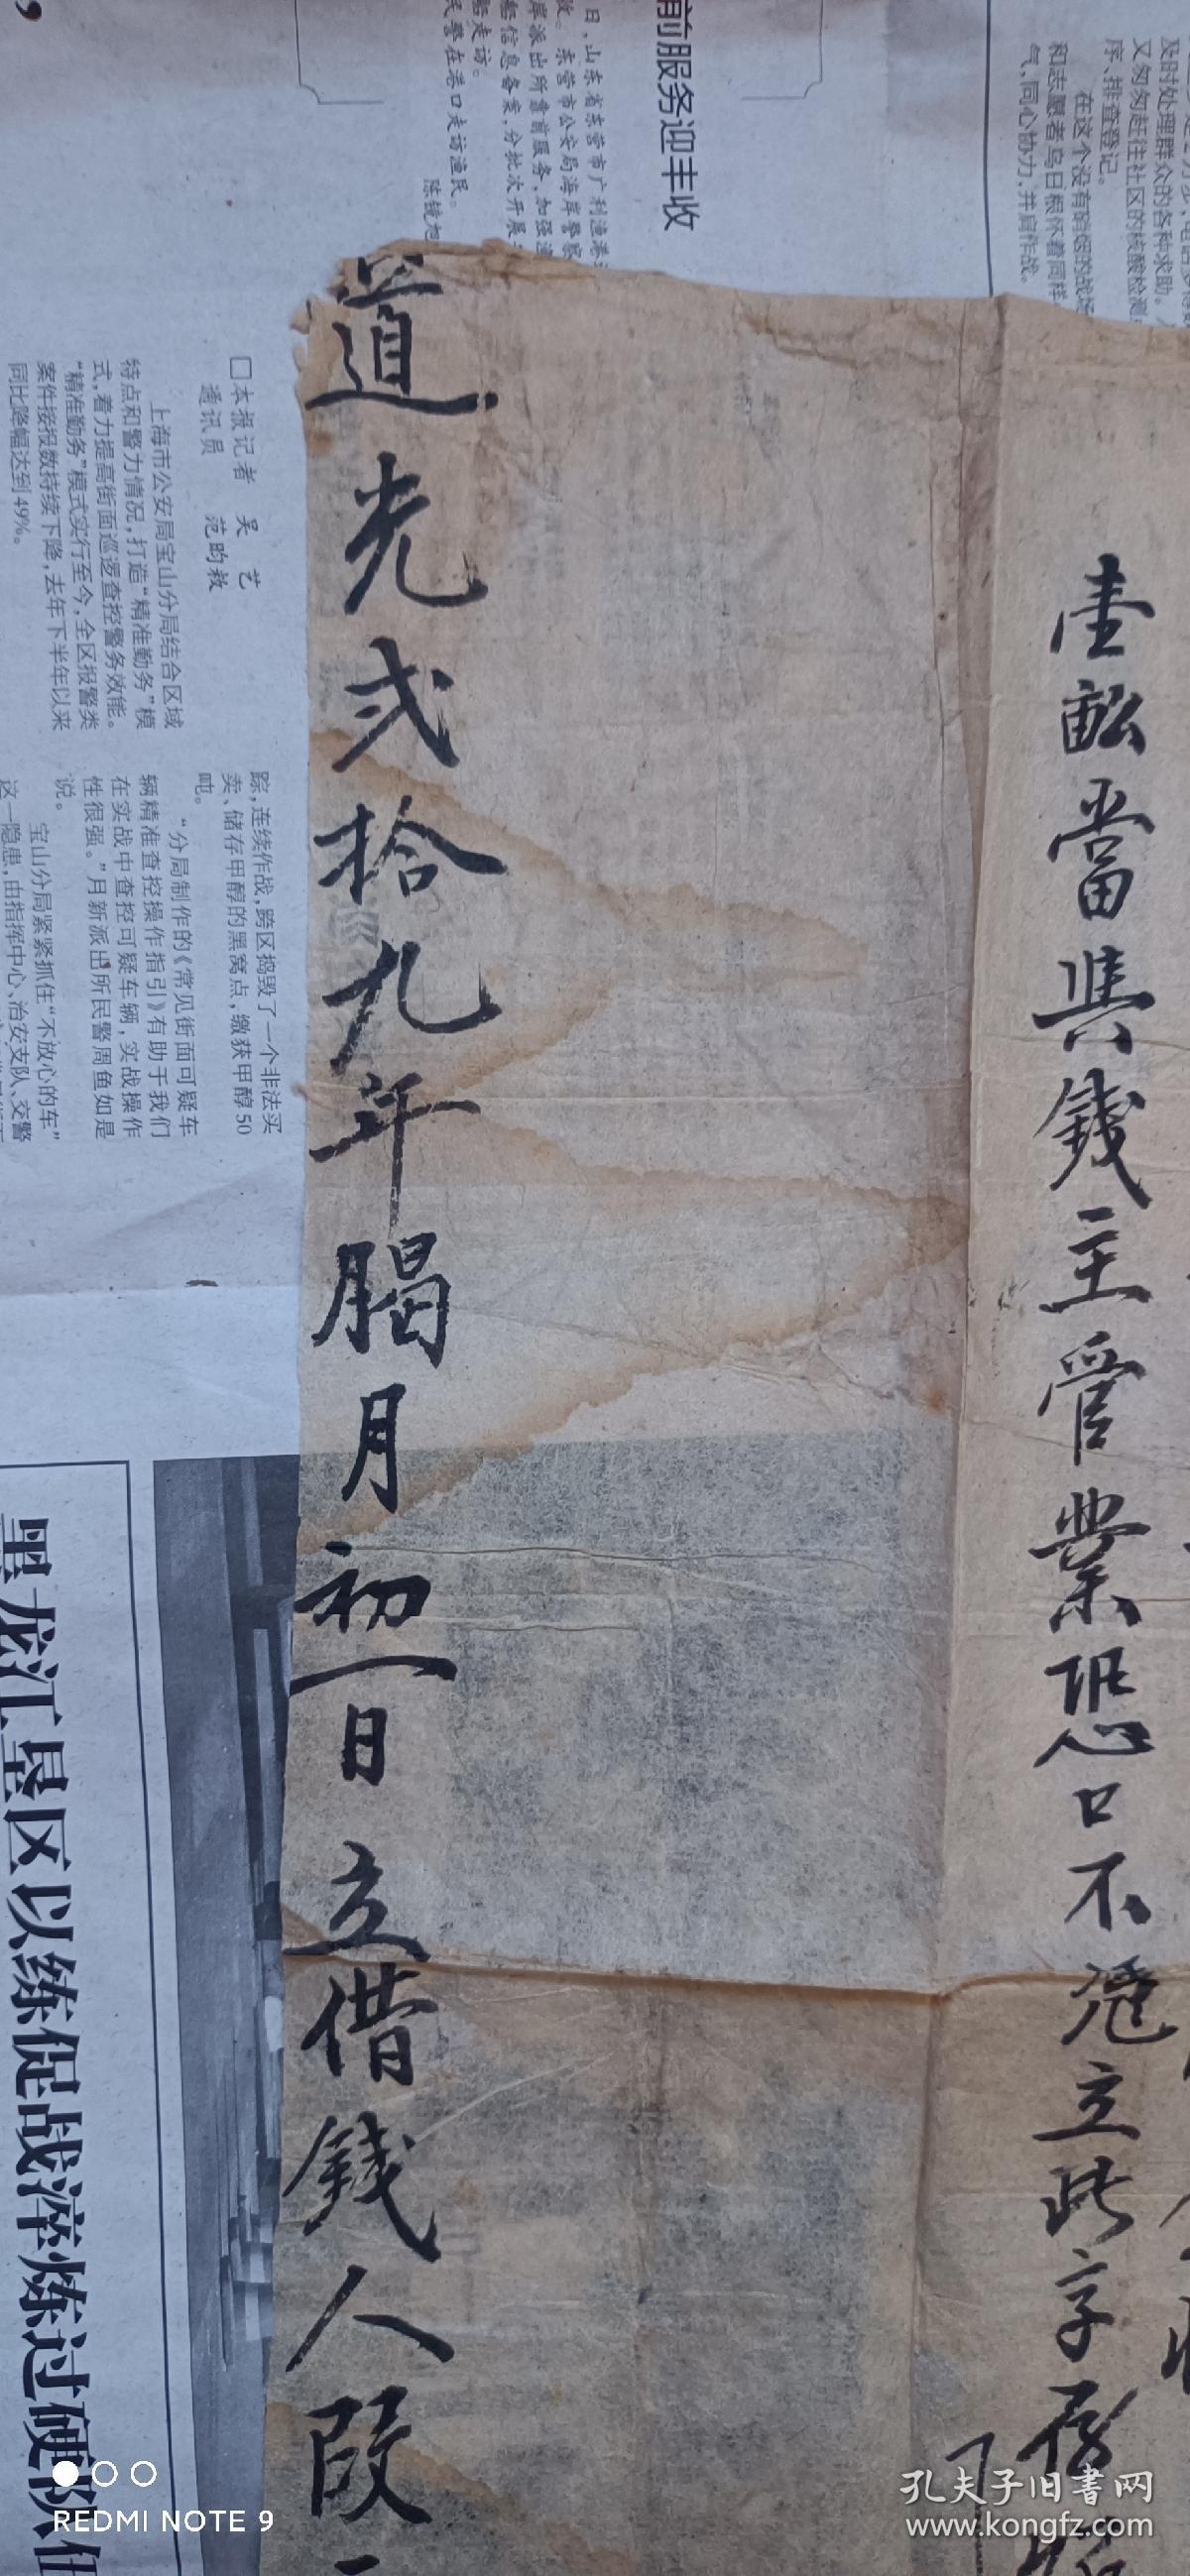 壹畝當與錢主管業恐口不憑立此字存
道光弍拾九年臈月初一日立借錢人段
前服务迎丰收
日，山东省东营市广利渔港
东营市公安局海岸警察
岸派出所靠前服务，加强
船信息备案，分批次开展
船走访。
民警在港口走访渔民。
及时处理群众的各种求助。
又匆匆赶往社区的核酸检测
序、排查登记。
在这个没有硝烟的战场
和志愿者乌日根怀着同样
气，同心协力，并肩作战。
□本报记者 吴 艺
通讯员 范昀赦
上海市公安局宝山分局结合区域
特点和警力情况，打造“精准勤务”模
式，着力提高街面巡逻查控警务效能。
“精准勤务”模式实行至今，全区报警类
案件接报数持续下降，去年下半年以来
同比降幅达到49%。
踪，连续作战，跨区捣毁了一个非法买
卖、储存甲醇的黑窝点，缴获甲醇50
吨。
“分局制作的《常见街面可疑车
辆精准查控操作指引》有助于我们
在实战中查控可疑车辆，实战操作
性很强。”月新派出所民警周鱼如是
说。
宝山分局紧紧抓住“不放心的车”
这一隐患，由指挥中心、治安支队、交警
黑龙江垦区以练促战淬炼过硬队伍
REDMI NOTE 9
孔夫子旧書网
www.kongfz.com